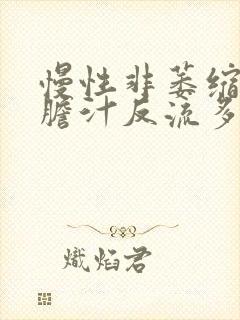 慢性非萎缩
膽汁反流多
熾焰君